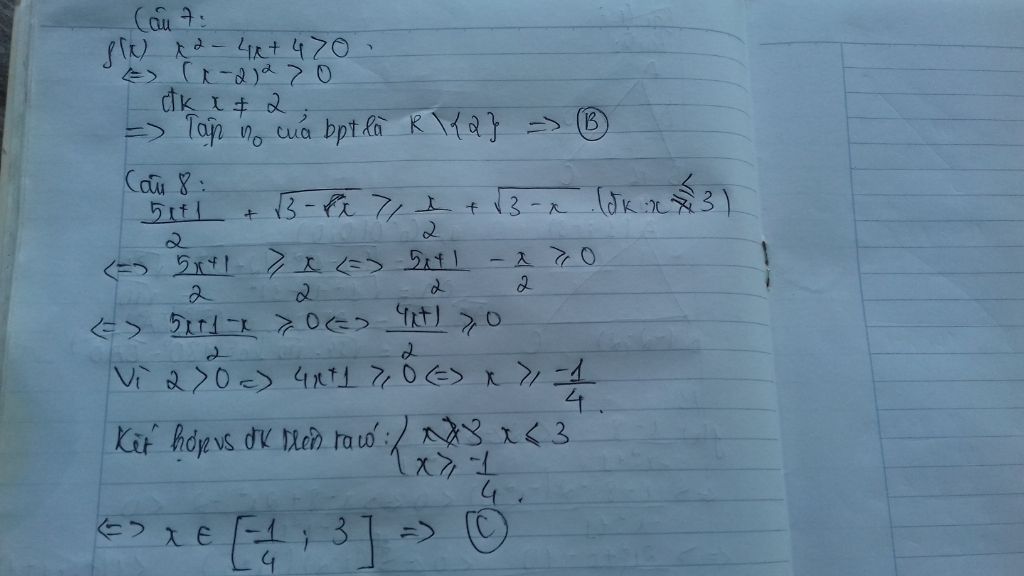 Câu 7:
f(x) x² - 4x + 4 > 0.
<=> (x - 2)² > 0
đk x ≠ 2.
=> Tập n₀ của bpt là R \ {2} => Ⓑ
Câu 8:
(5x+1)/2 + √(3-x) ≥ x/2 + √(3-x). (đk: x ≤ 3)
<=> (5x+1)/2 ≥ x/2 <=> (5x+1)/2 - x/2 ≥ 0
<=> (5x+1-x)/2 ≥ 0 <=> (4x+1)/2 ≥ 0
Vì 2 > 0 => 4x+1 ≥ 0 <=> x ≥ -1/4.
Kết hợp vs đk trên ta có: { x ≤ 3
x ≥ -1/4.
<=> x ∈ [-1/4 ; 3] => Ⓒ